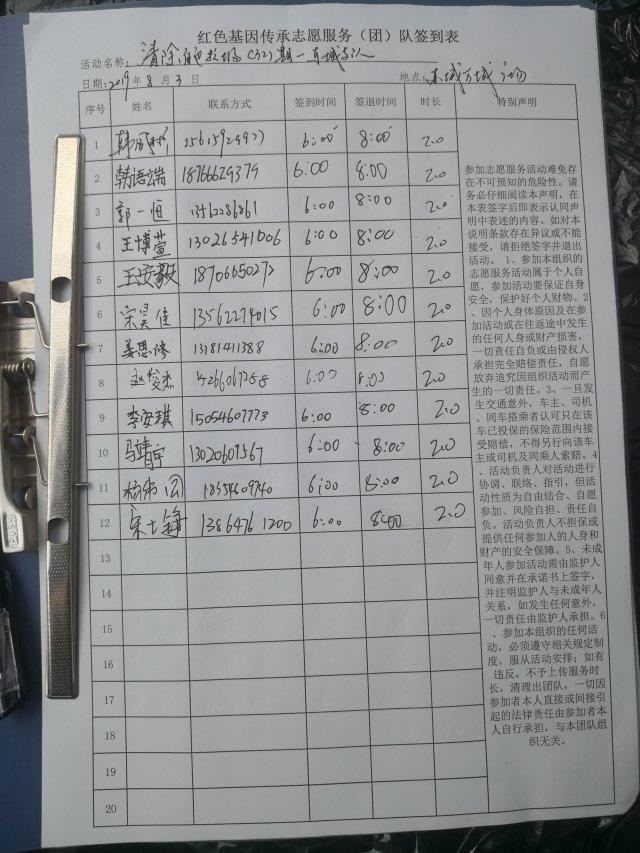 红色基因传承志愿服务（团）队签到表
活动名称：清除 (32)期一东城
日期：2019年8月3日 地点：东城万城广场
序号 姓名 联系方式 签到时间 签退时间 时长 特别声明
1 15615929927 6:00 8:00 2.0
2 韩语端 18766629379 6:00 8:00 2.0
3 郭一恒 13562286861 6:00 8:00 2.0
4 王博萱 13026541006 6:00 8:00 2.0
5 王 毅 18706650272 6:00 8:00 2.0
6 宋昊佳 13562274015 6:00 8:00 2.0
7 姜思修 13181411388 6:00 8:00 2.0
8 赵俊杰 15266067258 6:00 8:00 2.0
9 李安琪 15054607773 6:00 8:00 2.0
10 马靖宇 13020609567 6:00 8:00 2.0
11 18554609740 6:00 8:00 2.0
12 宋士锋 13864761200 6:00 8:00 2.0
13
14
15
16
17
18
19
20
参加志愿服务活动难免存
在不可预知的危险性。请
务必仔细阅读本声明，在
本表签字后即表示认同声
明中表述的内容。如对本
说明条款存在异议或不能
接受，请拒绝签字并退出
活动。 1、参加本组织的
志愿服务活动属于个人自
愿，参加活动要保证自身
安全，保护好个人财物。2
、因个人身体原因及在参
加活动或在往返途中发生
的任何人身或财产损害，
一切责任自负或由侵权人
承担完全赔偿责任，自愿
放弃追究因组织活动而产
生的一切责任。3、一旦发
生交通意外，车主、司机
、同车搭乘者认可只在该
车已投保的保险范围内接
受赔偿，不得另行向该车
主或司机及同乘人索赔。4
、活动负责人对活动进行
协调、联络、指引，但活
动性质为自由结合、自愿
参加、风险自担、责任自
负。活动负责人不担保或
提供任何参加人的人身和
财产的安全保障。5、未成
年人参加活动需由监护人
同意并在承诺书上签字，
并注明监护人与未成年人
关系，如发生任何意外，
一切责任由监护人承担。6
、参加本组织的任何活
动，必须遵守相关规定制
度，服从活动安排；如有
违反，不予上传服务时
长，清理出团队，一切因
参加者本人直接或间接引
起的法律责任由参加者本
人自行承担，与本团队组
织无关。